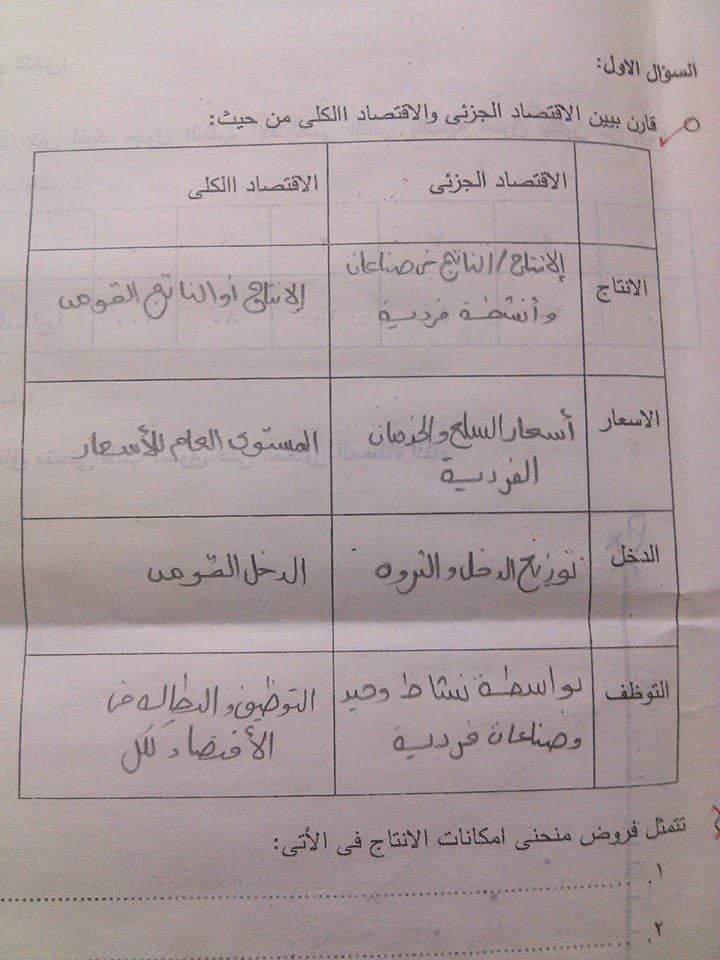 السؤال الاول:
قارن بيين الاقتصاد الجزئى والاقتصاد االكلى من حيث:
الاقتصاد الجزئى
الاقتصاد االكلى
الانتاج
الإنتاج/الناتج فى صناعات
وأنشطة فردية
الإنتاج أو الناتج القومى
الاسعار
أسعار السلع والخدمات
الفردية
المستوى العام للأسعار
الدخل
توزيع الدخل والثروه
الدخل القومى
التوظف
بواسطة نشاط وحيد
وصناعات فردية
التوظيف والبطاله فى
الأقتصاد ككل
تتمثل فروض منحنى امكانات الانتاج فى الأتى:
١.
٢.